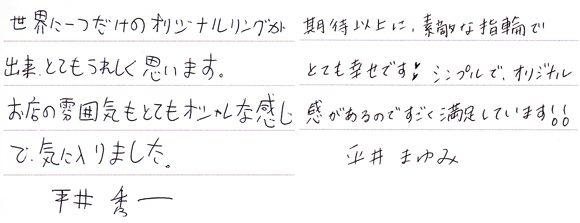 世界に一つだけのオリジナルリングが
出来、とてもうれしく思います。
お店の雰囲気もとてもオシャレな感じ
で、気に入りました。
平井 秀一
期待以上に、素敵な指輪で
とても幸せです! シンプルで、オリジナル
感があるのですごく満足しています!!
平井 まゆみ